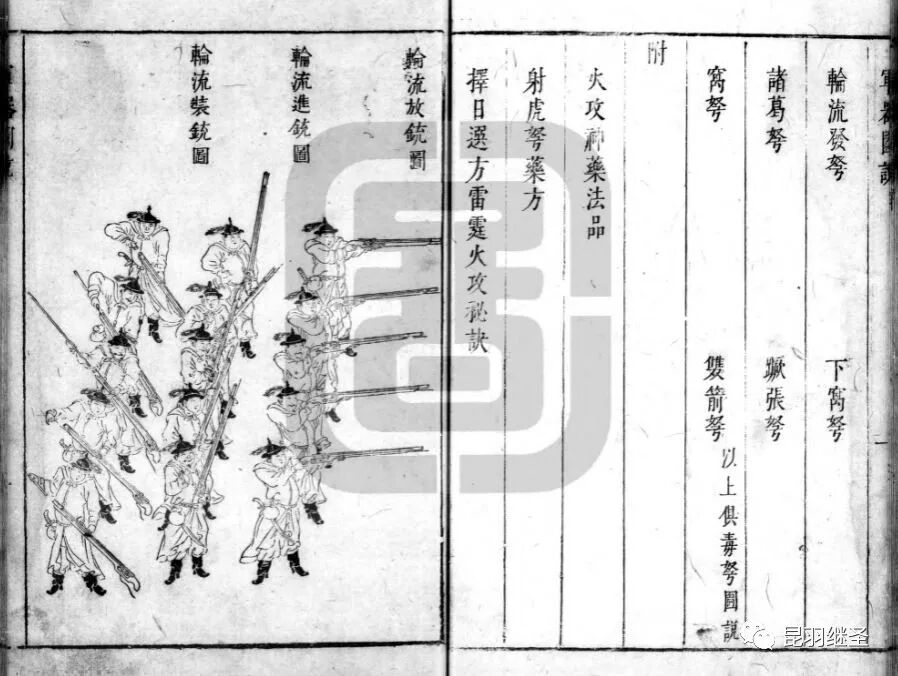 軍器圖說
一
輪流發弩　下窩弩
諸葛弩　蹶張弩
窩弩　雙箭弩 以上俱毒弩圖說
附
火攻神藥法品
射虎弩藥方
擇日選方雷霆火攻秘訣
輪流放銃圖
輪流進銃圖
輪流裝銃圖
昆羽继圣